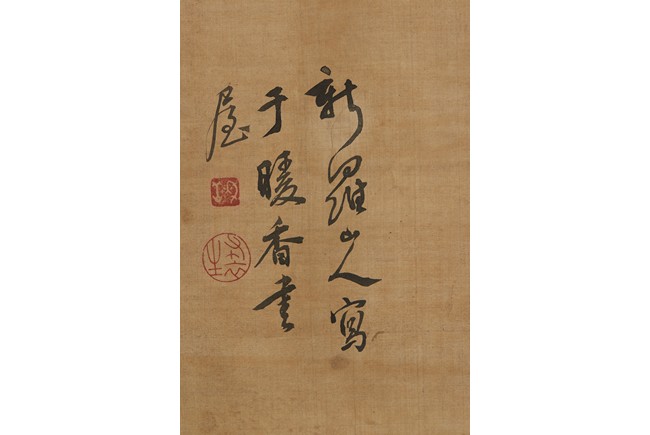 新羅山人寫
于暖香書
屋